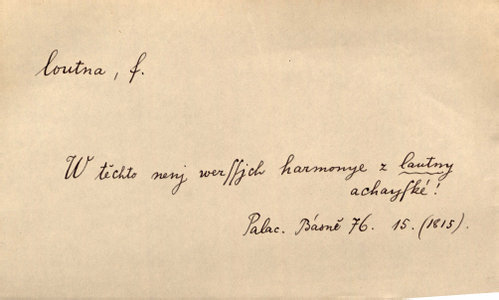 loutna, f.
W těchto nenj werssjch harmonye z lautny
achayské!
Palac. Básně 76. 15. (1815).